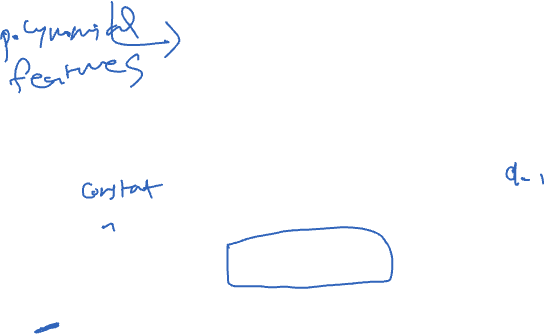 polynomial
features
constant
d-1